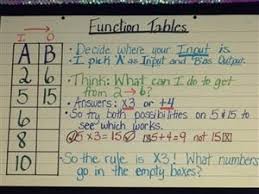 Function Tables
I → O
A B
2 6
5 15
6
8
10
• Decide where your Input is.
• I pick "A" as Input and "B" as Output.
• Think: What can I do to get
from 2 → 6?
• Answers: x3 or +4
• So try both possibilities on 5 & 15 to
see which works.
5 x 3 = 15 5+4=9 not 15
• So the rule is X3! What numbers
go in the empty boxes?